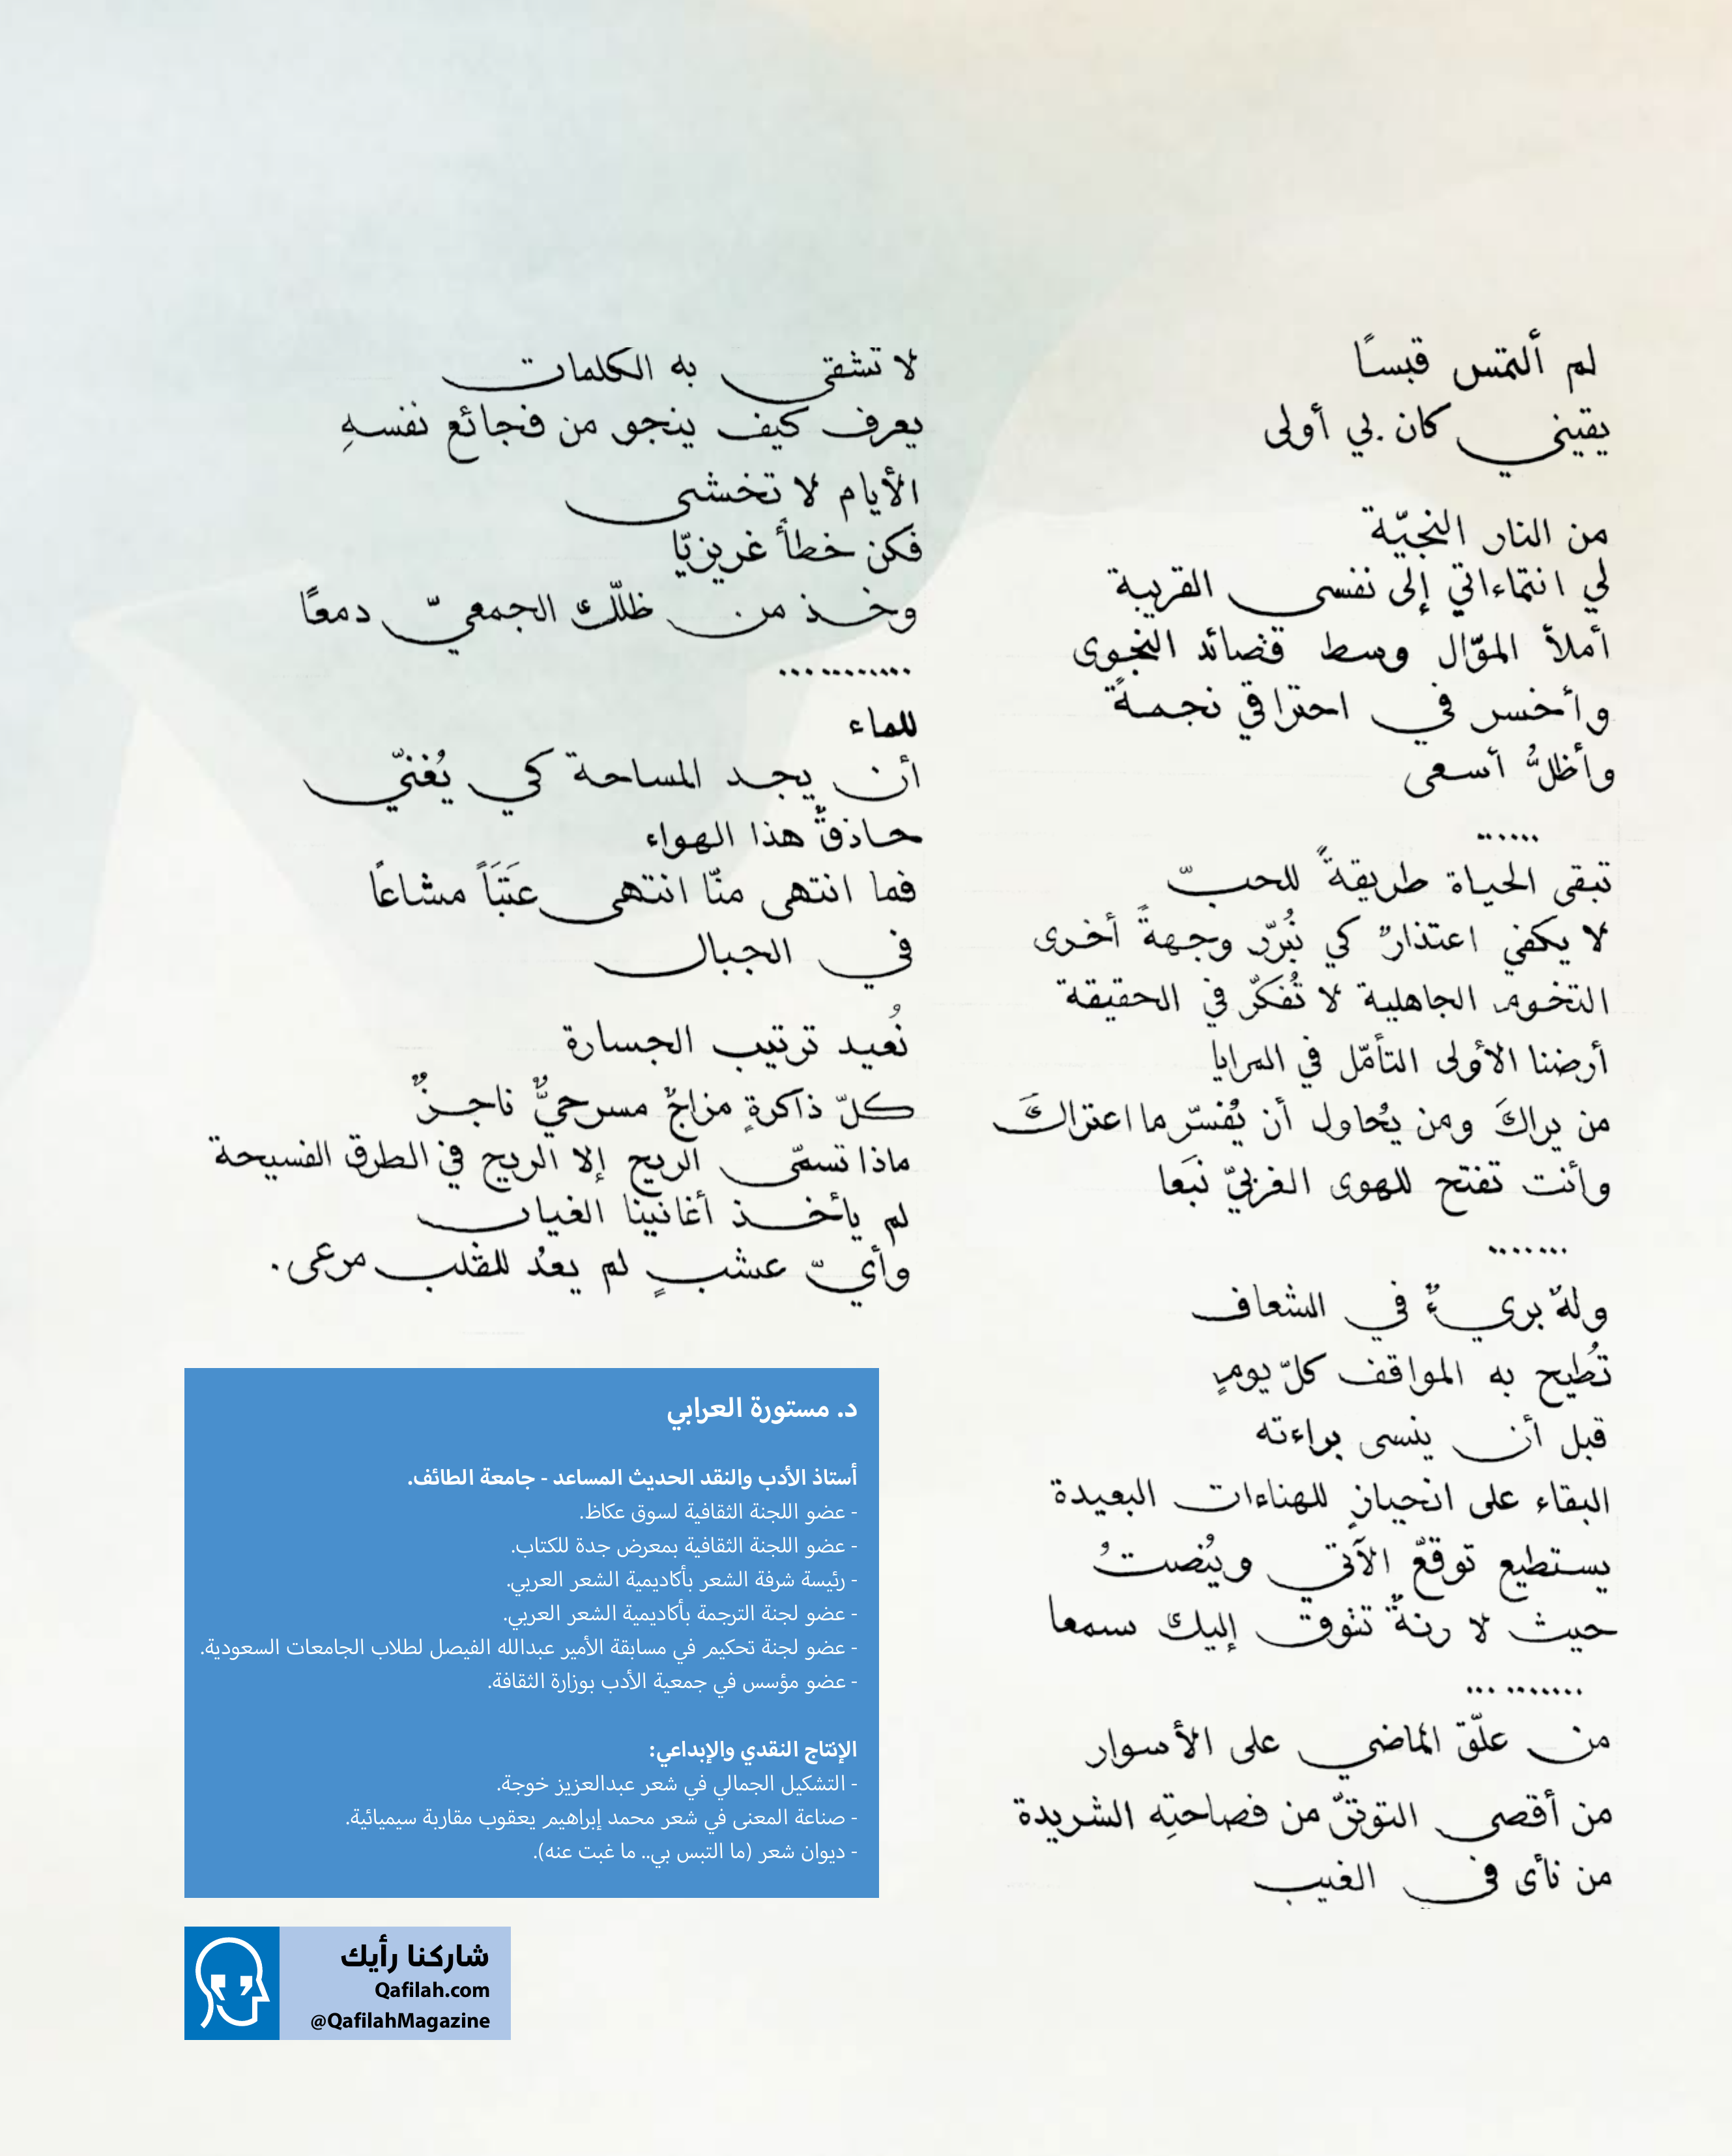 لم ألتمس قبسًا
يقيني كان بي أولى
من النار النجيّة
لي انتماءاتي إلى نفسي القريبة
أملأ الموّال وسط قصائد النجوى
وأخسر في احتراقي نجمةً
وأظلُّ أسعى
.......
تبقى الحياة طريقةً للحبّ
لا يكفي اعتذارٌ كي نُبرّر وجهةً أخرى
التخوم الجاهلية لا تُفكّر في الحقيقة
أرضنا الأولى التأمّل في المرايا
من يراكَ ومن يُحاول أن يُفسّر ما اعتراكَ
وأنت تفتح للهوى الغربيّ نَبعا
........
ولهٌ بريءٌ في الشعاف
تُطيح به المواقف كلّ يومٍ
قبل أن ينسى براءته
البقاء على انحيازٍ للهناءات البعيدة
يستطيع توقعّ الآتي ويُنصتُ
حيث لا رنةٌ تنوق إليك سمعا
...........
من علّق الماضي على الأسوار
من أقصى التوتّر من فصاحتِه الشريدة
من نأى في الغيب
لا تشقى به الكلمات
يعرف كيف ينجو من فجائع نفسهِ
الأيام لا تخشى
فكن خطأً غريزيّا
وخذ من ظلّك الجمعيّ دمعًا
............
للماء
أن يجد المساحة كي يُغنيّ
حاذقٌ هذا الهواء
فما انتهى منّا انتهى عَتَبَاً مشاعًا
في الجبال
نُعيد ترتيب الجسارة
كلّ ذاكرةٍ مزاجٌ مسرحيٌّ ناجزٌ
ماذا تسمّى الريح إلا الريح في الطرق الفسيحة
لم يأخذ أغانينا الغياب
وأيّ عشبٍ لم يعدُ للقلب مرعى.
د. مستورة العرابي
أستاذ الأدب والنقد الحديث المساعد - جامعة الطائف.
- عضو اللجنة الثقافية لسوق عكاظ.
- عضو اللجنة الثقافية بمعرض جدة للكتاب.
- رئيسة شرفة الشعر بأكاديمية الشعر العربي.
- عضو لجنة الترجمة بأكاديمية الشعر العربي.
- عضو لجنة تحكيم في مسابقة الأمير عبدالله الفيصل لطلاب الجامعات السعودية.
- عضو مؤسس في جمعية الأدب بوزارة الثقافة.
الإنتاج النقدي والإبداعي:
- التشكيل الجمالي في شعر عبدالعزيز خوجة.
- صناعة المعنى في شعر محمد إبراهيم يعقوب مقاربة سيميائية.
- ديوان شعر (ما التبس بي.. ما غبت عنه).
شاركنا رأيك
Qafilah.com
@QafilahMagazine